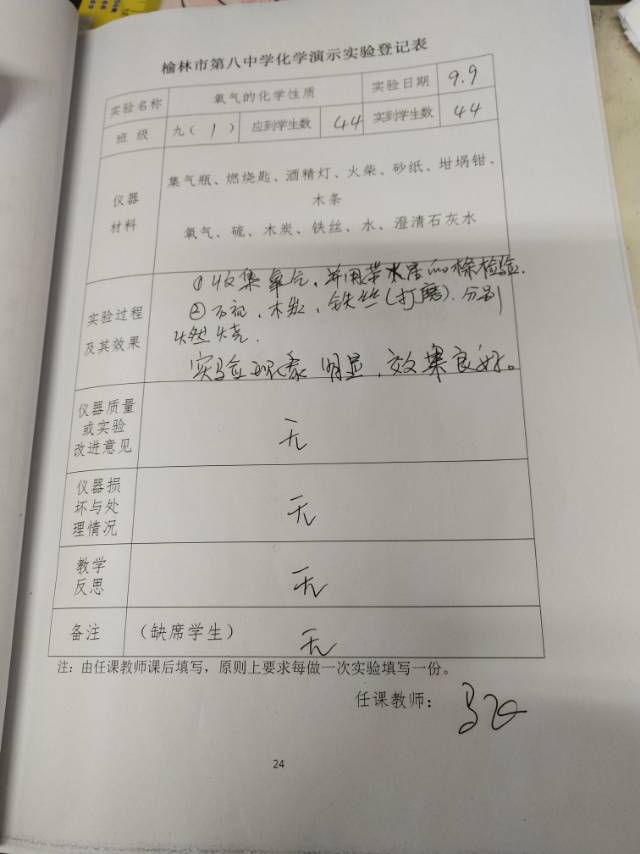 榆林市第八中学化学演示实验登记表
实验名称 氧气的化学性质 实验日期 9.9
班 级 九（ 1 ） 应到学生数 44 实到学生数 44
仪器
材料
集气瓶、燃烧匙、酒精灯、火柴、砂纸、坩埚钳、
木条
氧气、硫、木炭、铁丝、水、澄清石灰水
实验过程
及其效果
①收集氧气，并用带火星的木条检验.
②、木炭、铁丝(打磨).分别
燃烧.
实验现象明显，效果良好。
仪器质量
或实验
改进意见
无
仪器损
坏与处
理情况
无
教学
反思
无
备注 （缺席学生） 无
注：由任课教师课后填写，原则上要求每做一次实验填写一份。
任课教师：
24